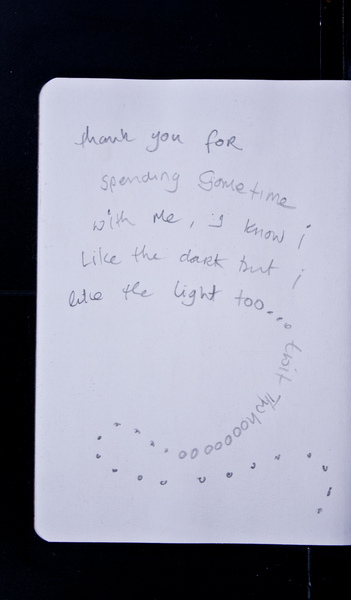 thank you for
spending sometime
with me, i know i
like the dark but i
like the light too...